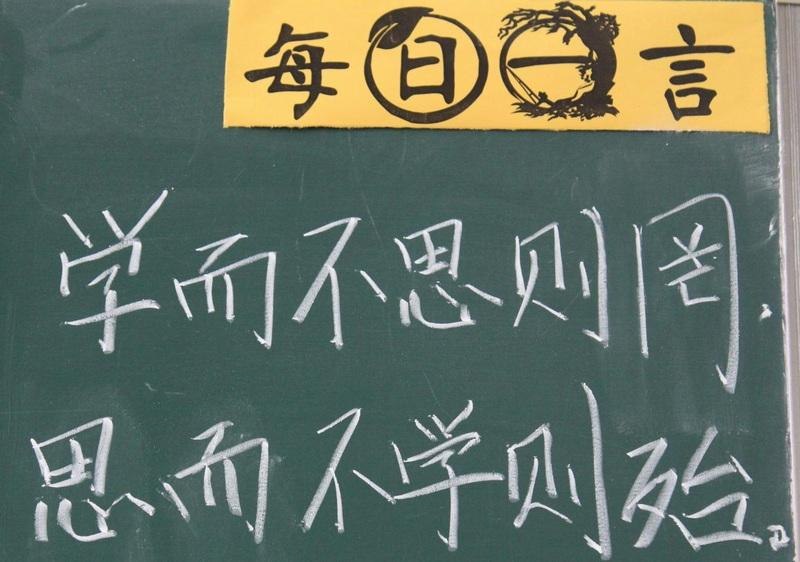 每日一言
学而不思则罔.
思而不学则殆。